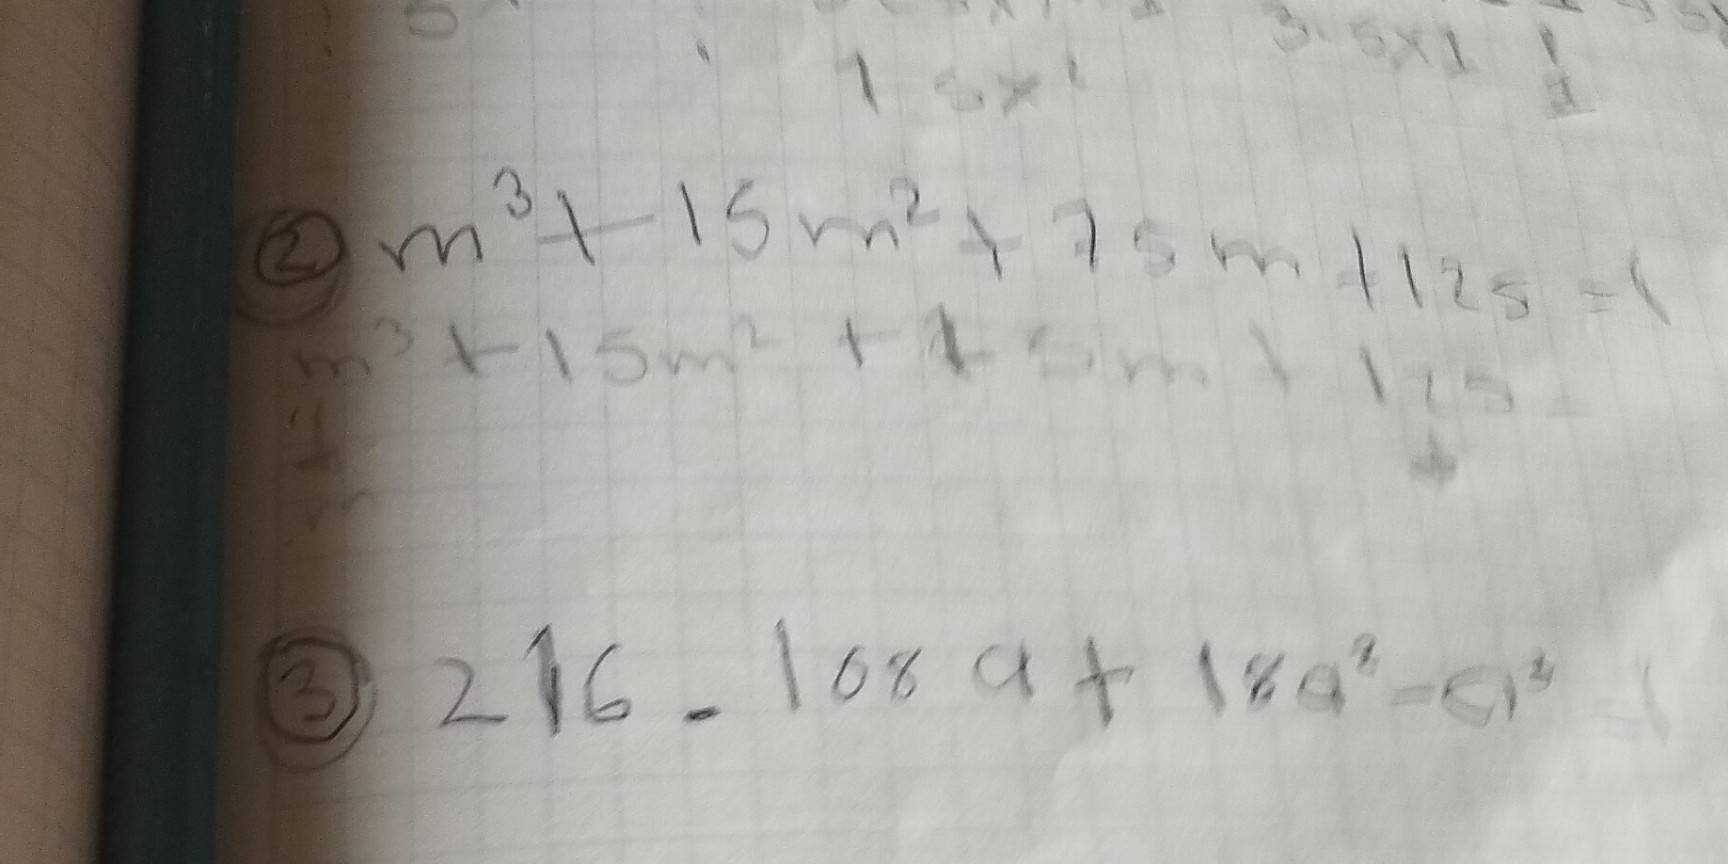 1 5x¹
3. 5x1
② m³+15m²+75m+125=(
m³+15m²+75m+125=
+
m
③ 216-108a+18a²-a³=(